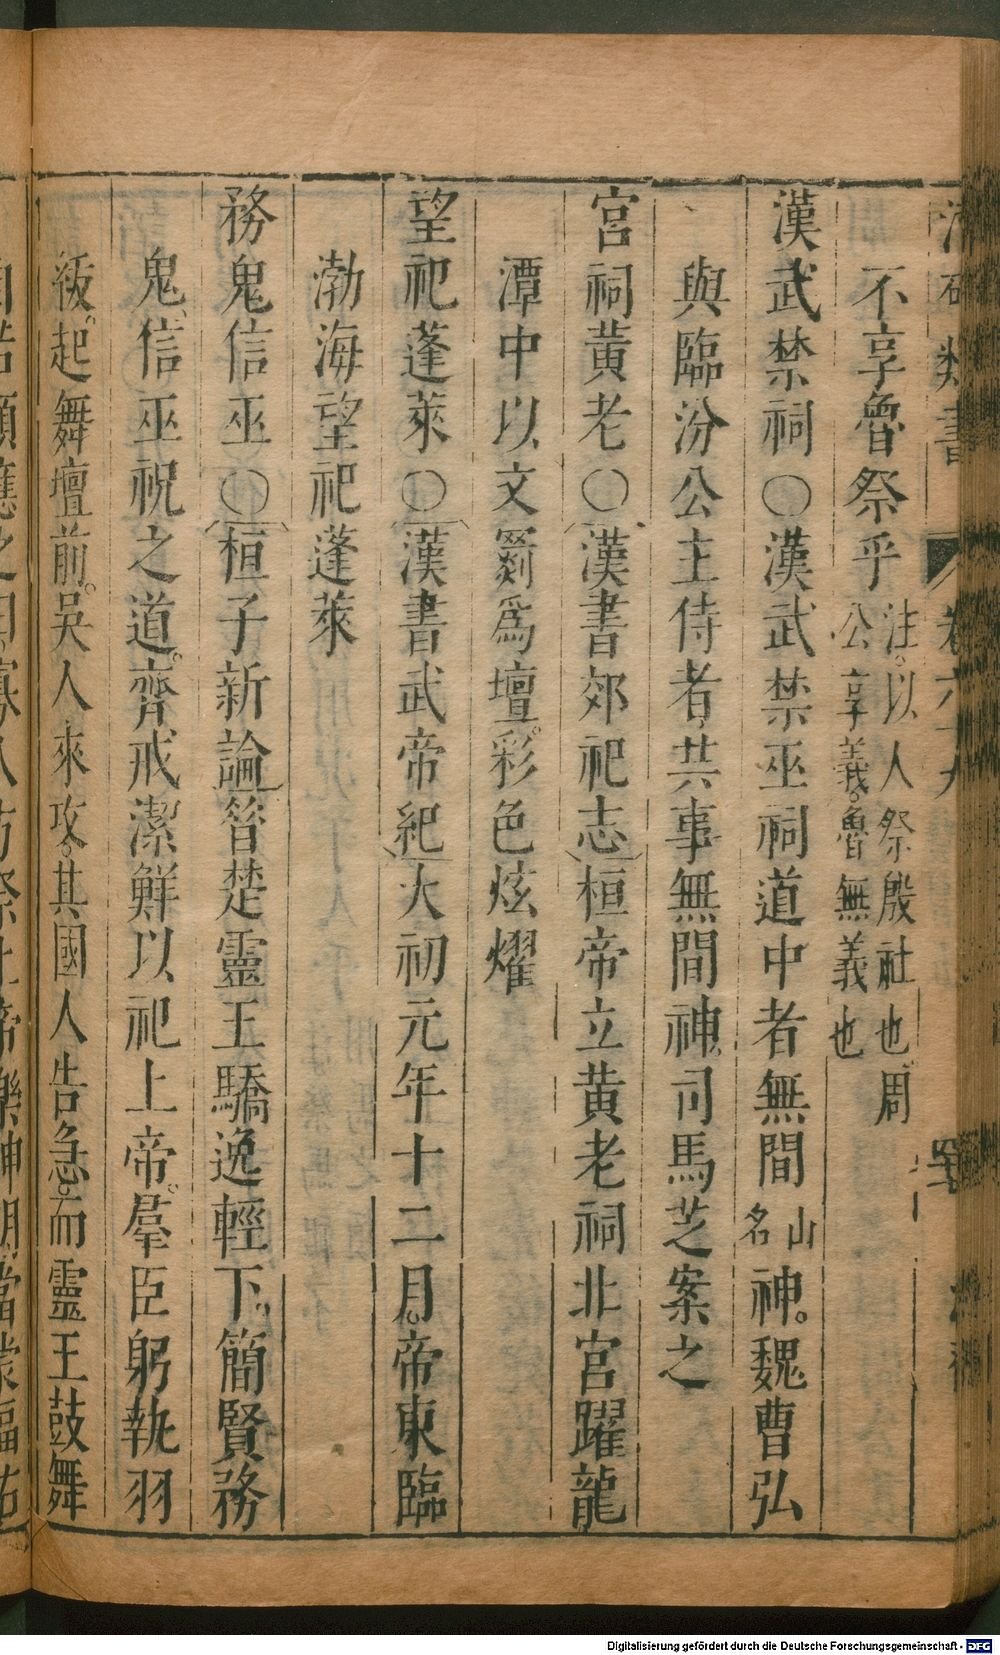 類書 卷六十九
不享魯祭乎 注以人祭殷社也周
公享義魯無義也
漢武禁祠〇漢武禁巫祠道中者無間 山名 神魏曹弘
與臨汾公主侍者共事無間神司馬芝案之
宮祠黄老〇漢書郊祀志桓帝立黄老祠北宮躍龍
潭中以文罽爲壇彩色炫燿
望祀蓬萊〇漢書武帝紀大初元年十二月帝東臨
渤海望祀蓬萊
務鬼信巫〇桓子新論昝楚靈王驕逸輕下簡賢務
鬼信巫祝之道齊戒潔鮮以祀上帝羣臣躬執羽
紱起舞壇前吳人來攻其國人告急而靈王鼓舞
Digitalisierung gefördert durch die Deutsche Forschungsgemeinschaft - DFG